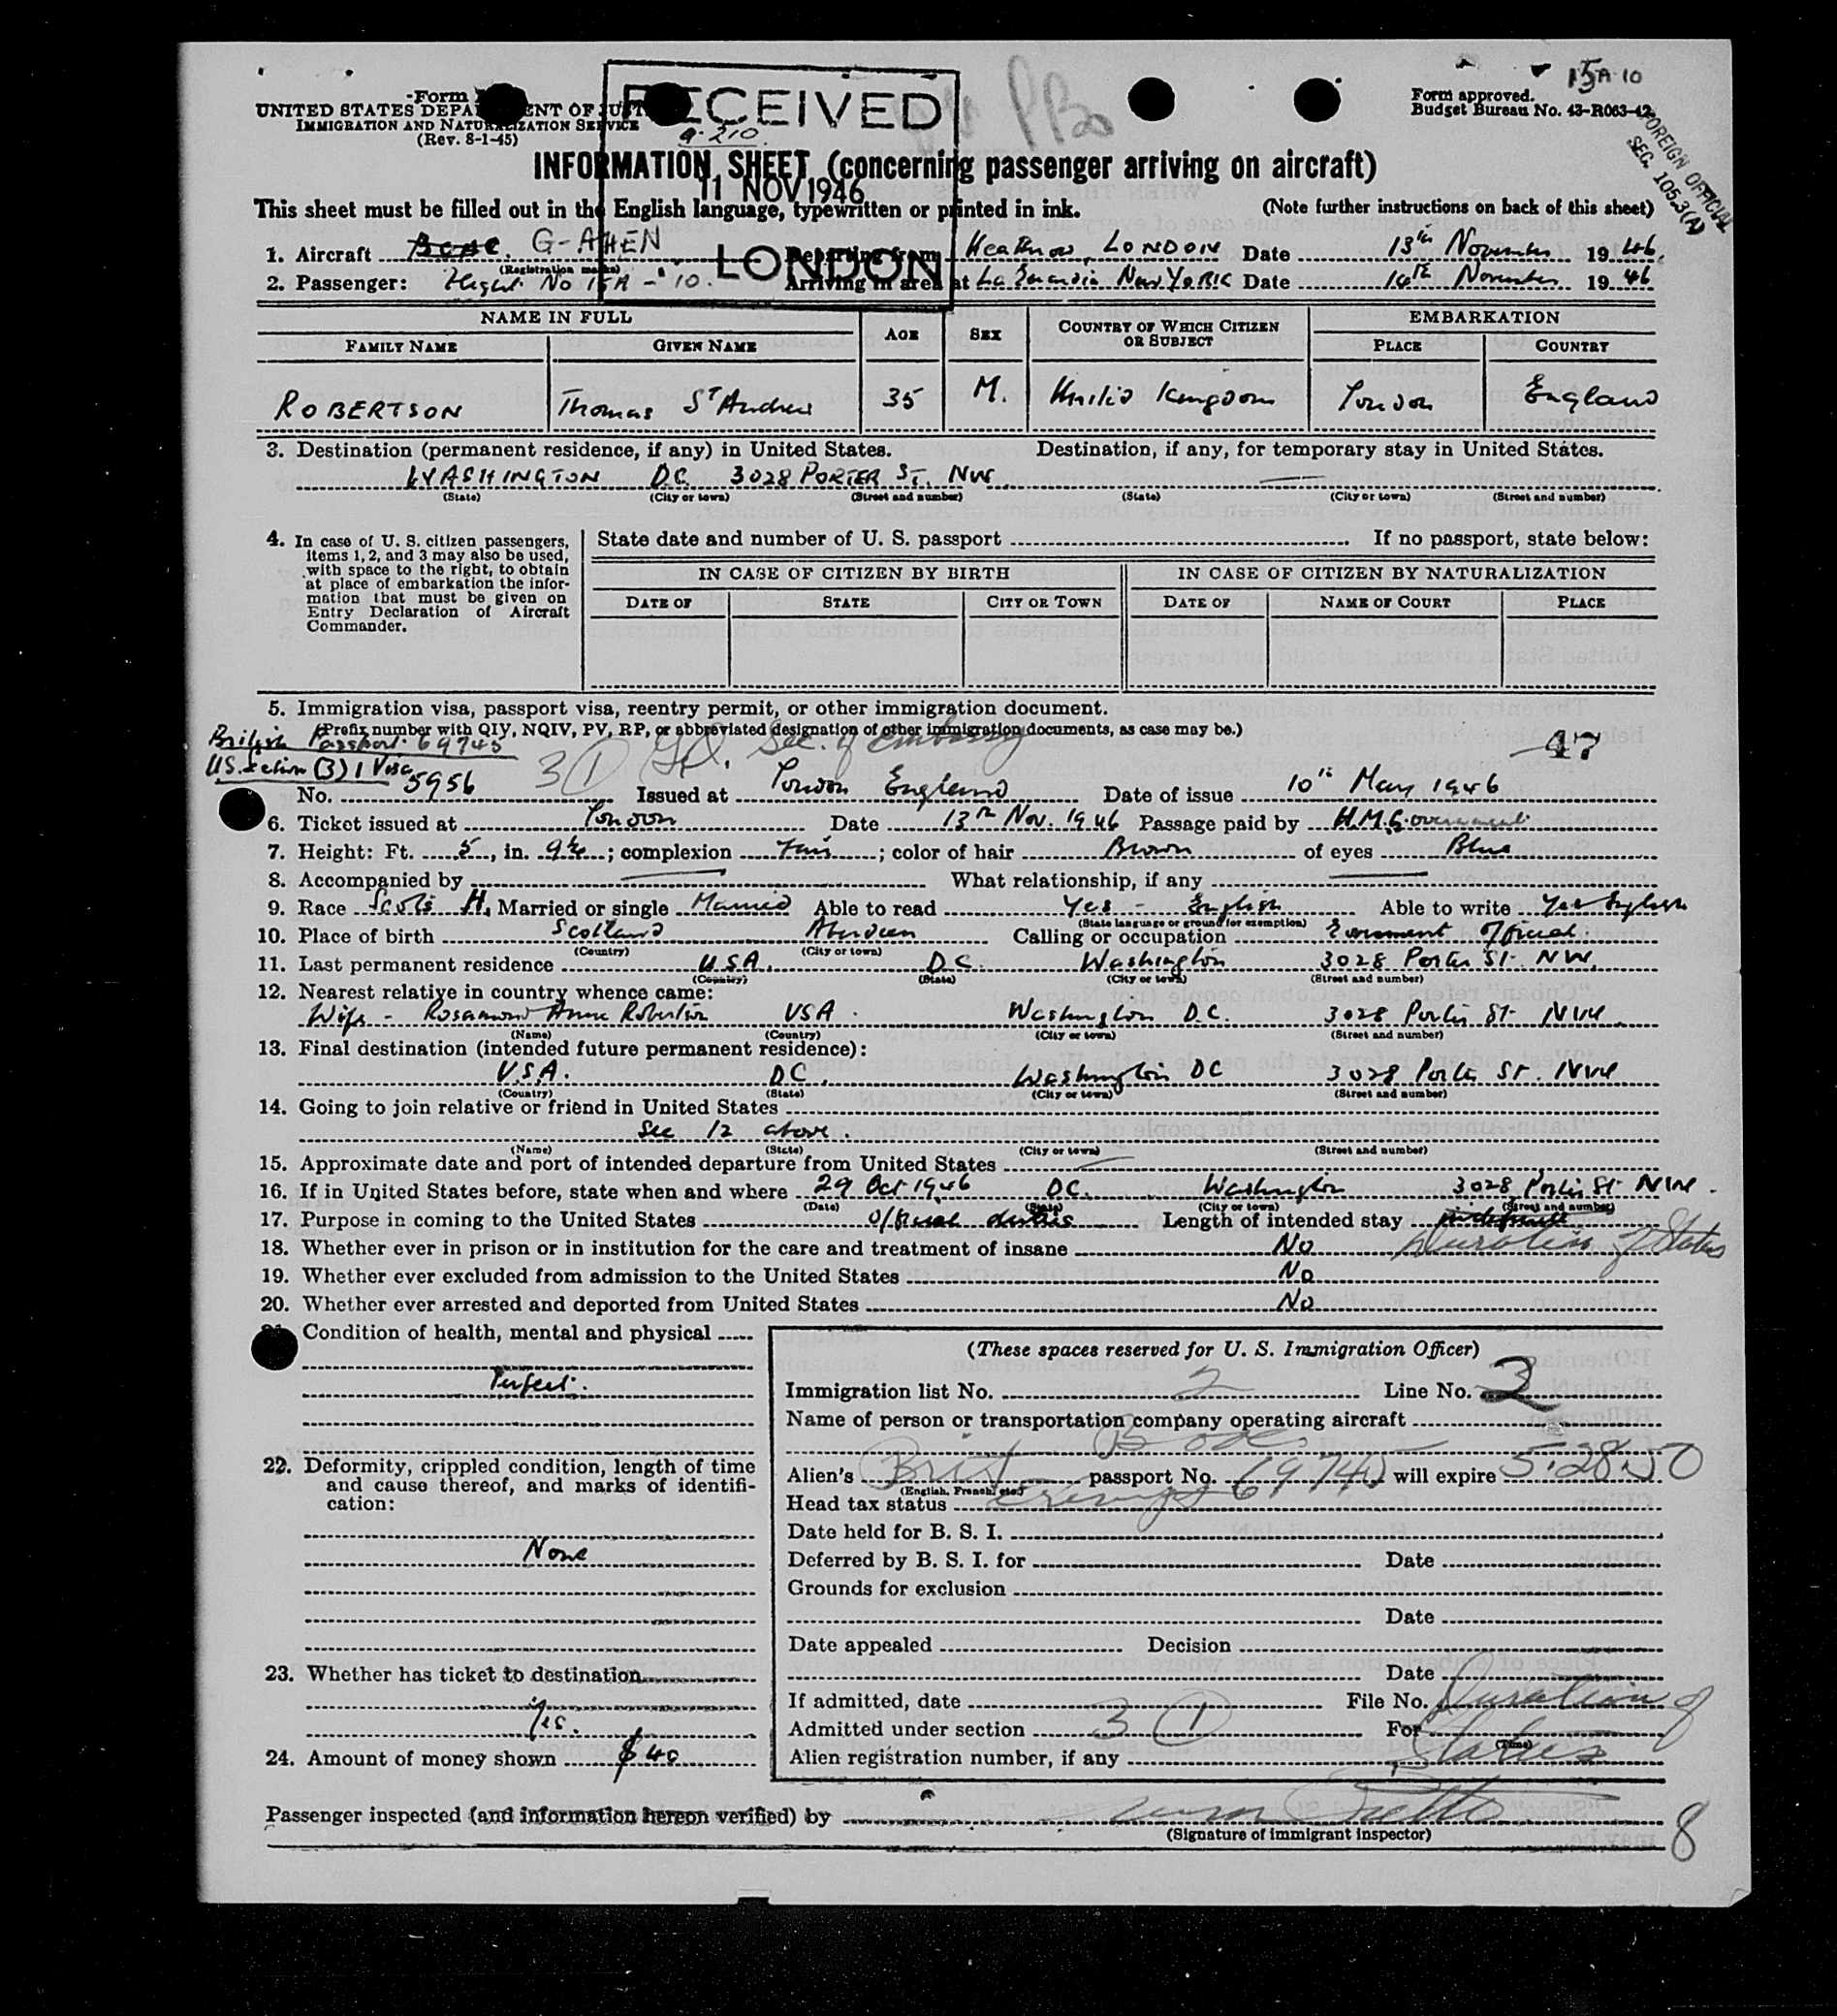 15A 10
Form
UNITED STATES DEPARTMENT OF JUSTICE
IMMIGRATION AND NATURALIZATION SERVICE
(Rev. 8-1-45)
RECEIVED
11 NOV 1946
LONDON
Form approved.
Budget Bureau No. 43-R063-42
FOREIGN OFFICIAL
SEC. 105.3(A)
INFORMATION SHEET (concerning passenger arriving on aircraft)
This sheet must be filled out in the English language, typewritten or printed in ink. (Note further instructions on back of this sheet)
1. Aircraft G-AHEN Departing from Heathrow, LONDON Date 13th November 1946.
(Registration marks)
2. Passenger: Flight No 15A - 10. Arriving in area at La Guardia New YORK Date 14th November 1946
NAME IN FULL AGE SEX COUNTRY OF WHICH CITIZEN OR SUBJECT EMBARKATION
FAMILY NAME GIVEN NAME PLACE COUNTRY
ROBERTSON Thomas St Andrew 35 M. United Kingdom London England
3. Destination (permanent residence, if any) in United States. Destination, if any, for temporary stay in United States.
WASHINGTON D.C. 3028 PORTER ST. NW
(State) (City or town) (Street and number) (State) (City or town) (Street and number)
4. In case of U. S. citizen passengers, items 1, 2, and 3 may also be used, with space to the right, to obtain at place of embarkation the information that must be given on Entry Declaration of Aircraft Commander.
State date and number of U. S. passport If no passport, state below:
IN CASE OF CITIZEN BY BIRTH IN CASE OF CITIZEN BY NATURALIZATION
DATE OF STATE CITY OR TOWN DATE OF NAME OF COURT PLACE
5. Immigration visa, passport visa, reentry permit, or other immigration document.
(Prefix number with QIV, NQIV, PV, RP, or abbreviated designation of other immigration documents, as case may be.)
British Passport 69745
US. Section (3) 1 Visa
3 (1) Sec. of Embassy
47
No. 5956 Issued at London England Date of issue 10th May 1946
6. Ticket issued at London Date 13th Nov. 1946 Passage paid by H.M. Government
7. Height: Ft. 5, in. 9½; complexion Fair; color of hair Brown of eyes Blue
8. Accompanied by What relationship, if any
9. Race Scots H. Married or single Married Able to read Yes - English Able to write Yes English
(State language or ground for exemption)
10. Place of birth Scotland Aberdeen Calling or occupation Government Official.
(Country) (City or town)
11. Last permanent residence USA. D.C. Washington 3028 Porter St. NW.
(Country) (State) (City or town) (Street and number)
12. Nearest relative in country whence came:
Wife - Rosamond Anne Robertson USA. Washington D.C. 3028 Porter St NW
(Name) (Country) (City or town) (Street and number)
13. Final destination (intended future permanent residence):
U.S.A. DC. Washington DC 3028 Porter St. NW
(Country) (State) (City or town) (Street and number)
14. Going to join relative or friend in United States
See 12 above.
(Name) (State) (City or town) (Street and number)
15. Approximate date and port of intended departure from United States
16. If in United States before, state when and where 29 Oct 1946 DC. Washington 3028 Porter St NW.
(Date) (State) (City or town) (Street and number)
17. Purpose in coming to the United States Official duties Length of intended stay indefinite
Duration of Status
18. Whether ever in prison or in institution for the care and treatment of insane No
19. Whether ever excluded from admission to the United States No
20. Whether ever arrested and deported from United States No
Condition of health, mental and physical
Perfect.
22. Deformity, crippled condition, length of time and cause thereof, and marks of identification:
None
23. Whether has ticket to destination
Yes.
24. Amount of money shown $40
(These spaces reserved for U. S. Immigration Officer)
Immigration list No. 2 Line No. 3
Name of person or transportation company operating aircraft
Alien's Brit passport No. 69745 will expire 5.28.50
(English, French, etc.)
Head tax status Exempt
Date held for B. S. I.
Deferred by B. S. I. for Date
Grounds for exclusion
Date
Date appealed Decision
Date
If admitted, date File No.
Duration of Status
Admitted under section 3 (1) For
(Time)
Alien registration number, if any
Passenger inspected (and information hereon verified) by
(Signature of immigrant inspector)
8